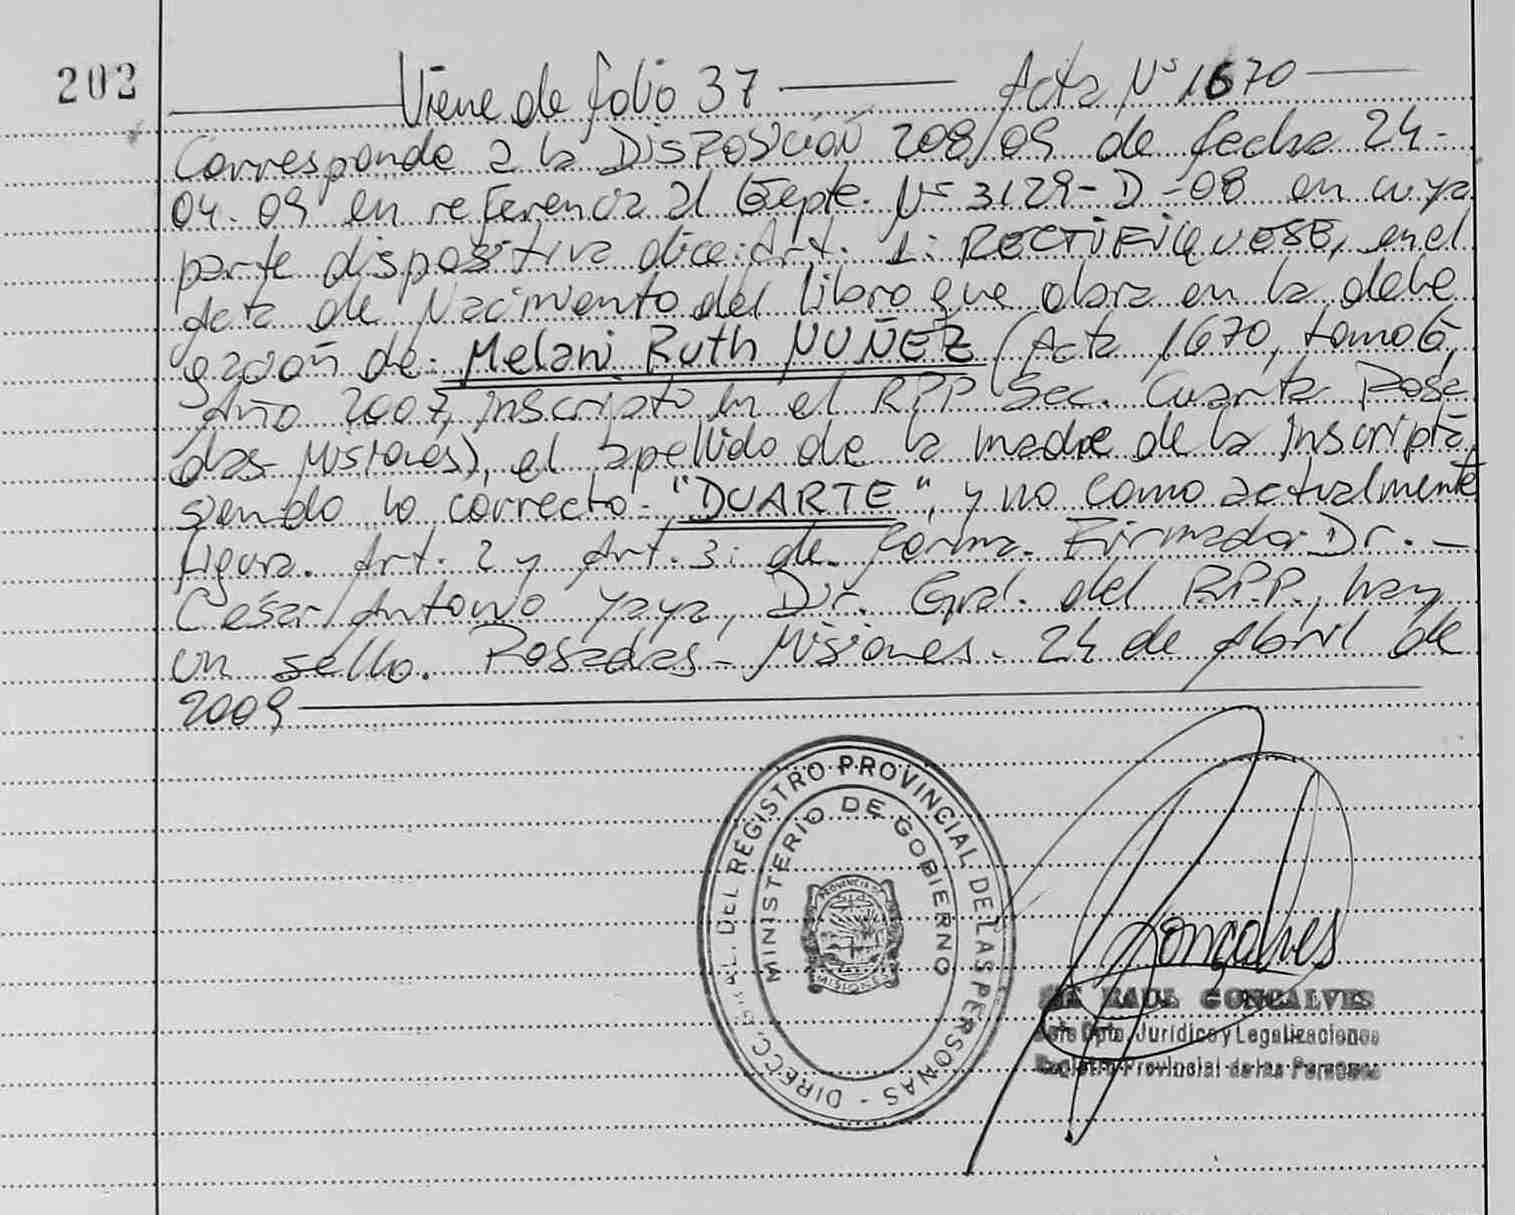 202
Viene de folio 37 — Acta Nº 1670 —
Corresponde a la DISPOSICIÓN 208/09 de fecha 24-
04-09 en referencia al Expte. Nº 3129-D-08 en cuya
parte dispositiva dice: Art. 1: RECTIFIQUESE, en el
Acta de Nacimiento del libro que obra en la dele
gación de: Melani Ruth NUÑEZ (Acta 1670, tomo 6,
Año 2007, inscripto en el RPP Sec. Cuarta Posa
das-Misiones), el apellido de la madre de la inscripta,
siendo lo correcto: "DUARTE", y no como actualmente
figura. Art. 2 y Art. 3: de forma. Firmado: Dr. —
César Antonio Yaya, Dir. Gral. del R.P.P., hay
un sello. Posadas - Misiones. 24 de Abril de
2009
DIRECC. GRAL. DEL REGISTRO PROVINCIAL DE LAS PERSONAS -
MINISTERIO DE GOBIERNO
PROVINCIA DE
MISIONES
Gonçalves
RAUL GONCALVES
Jefe Dpto. Jurídico y Legalizaciones
Registro Provincial de las Personas